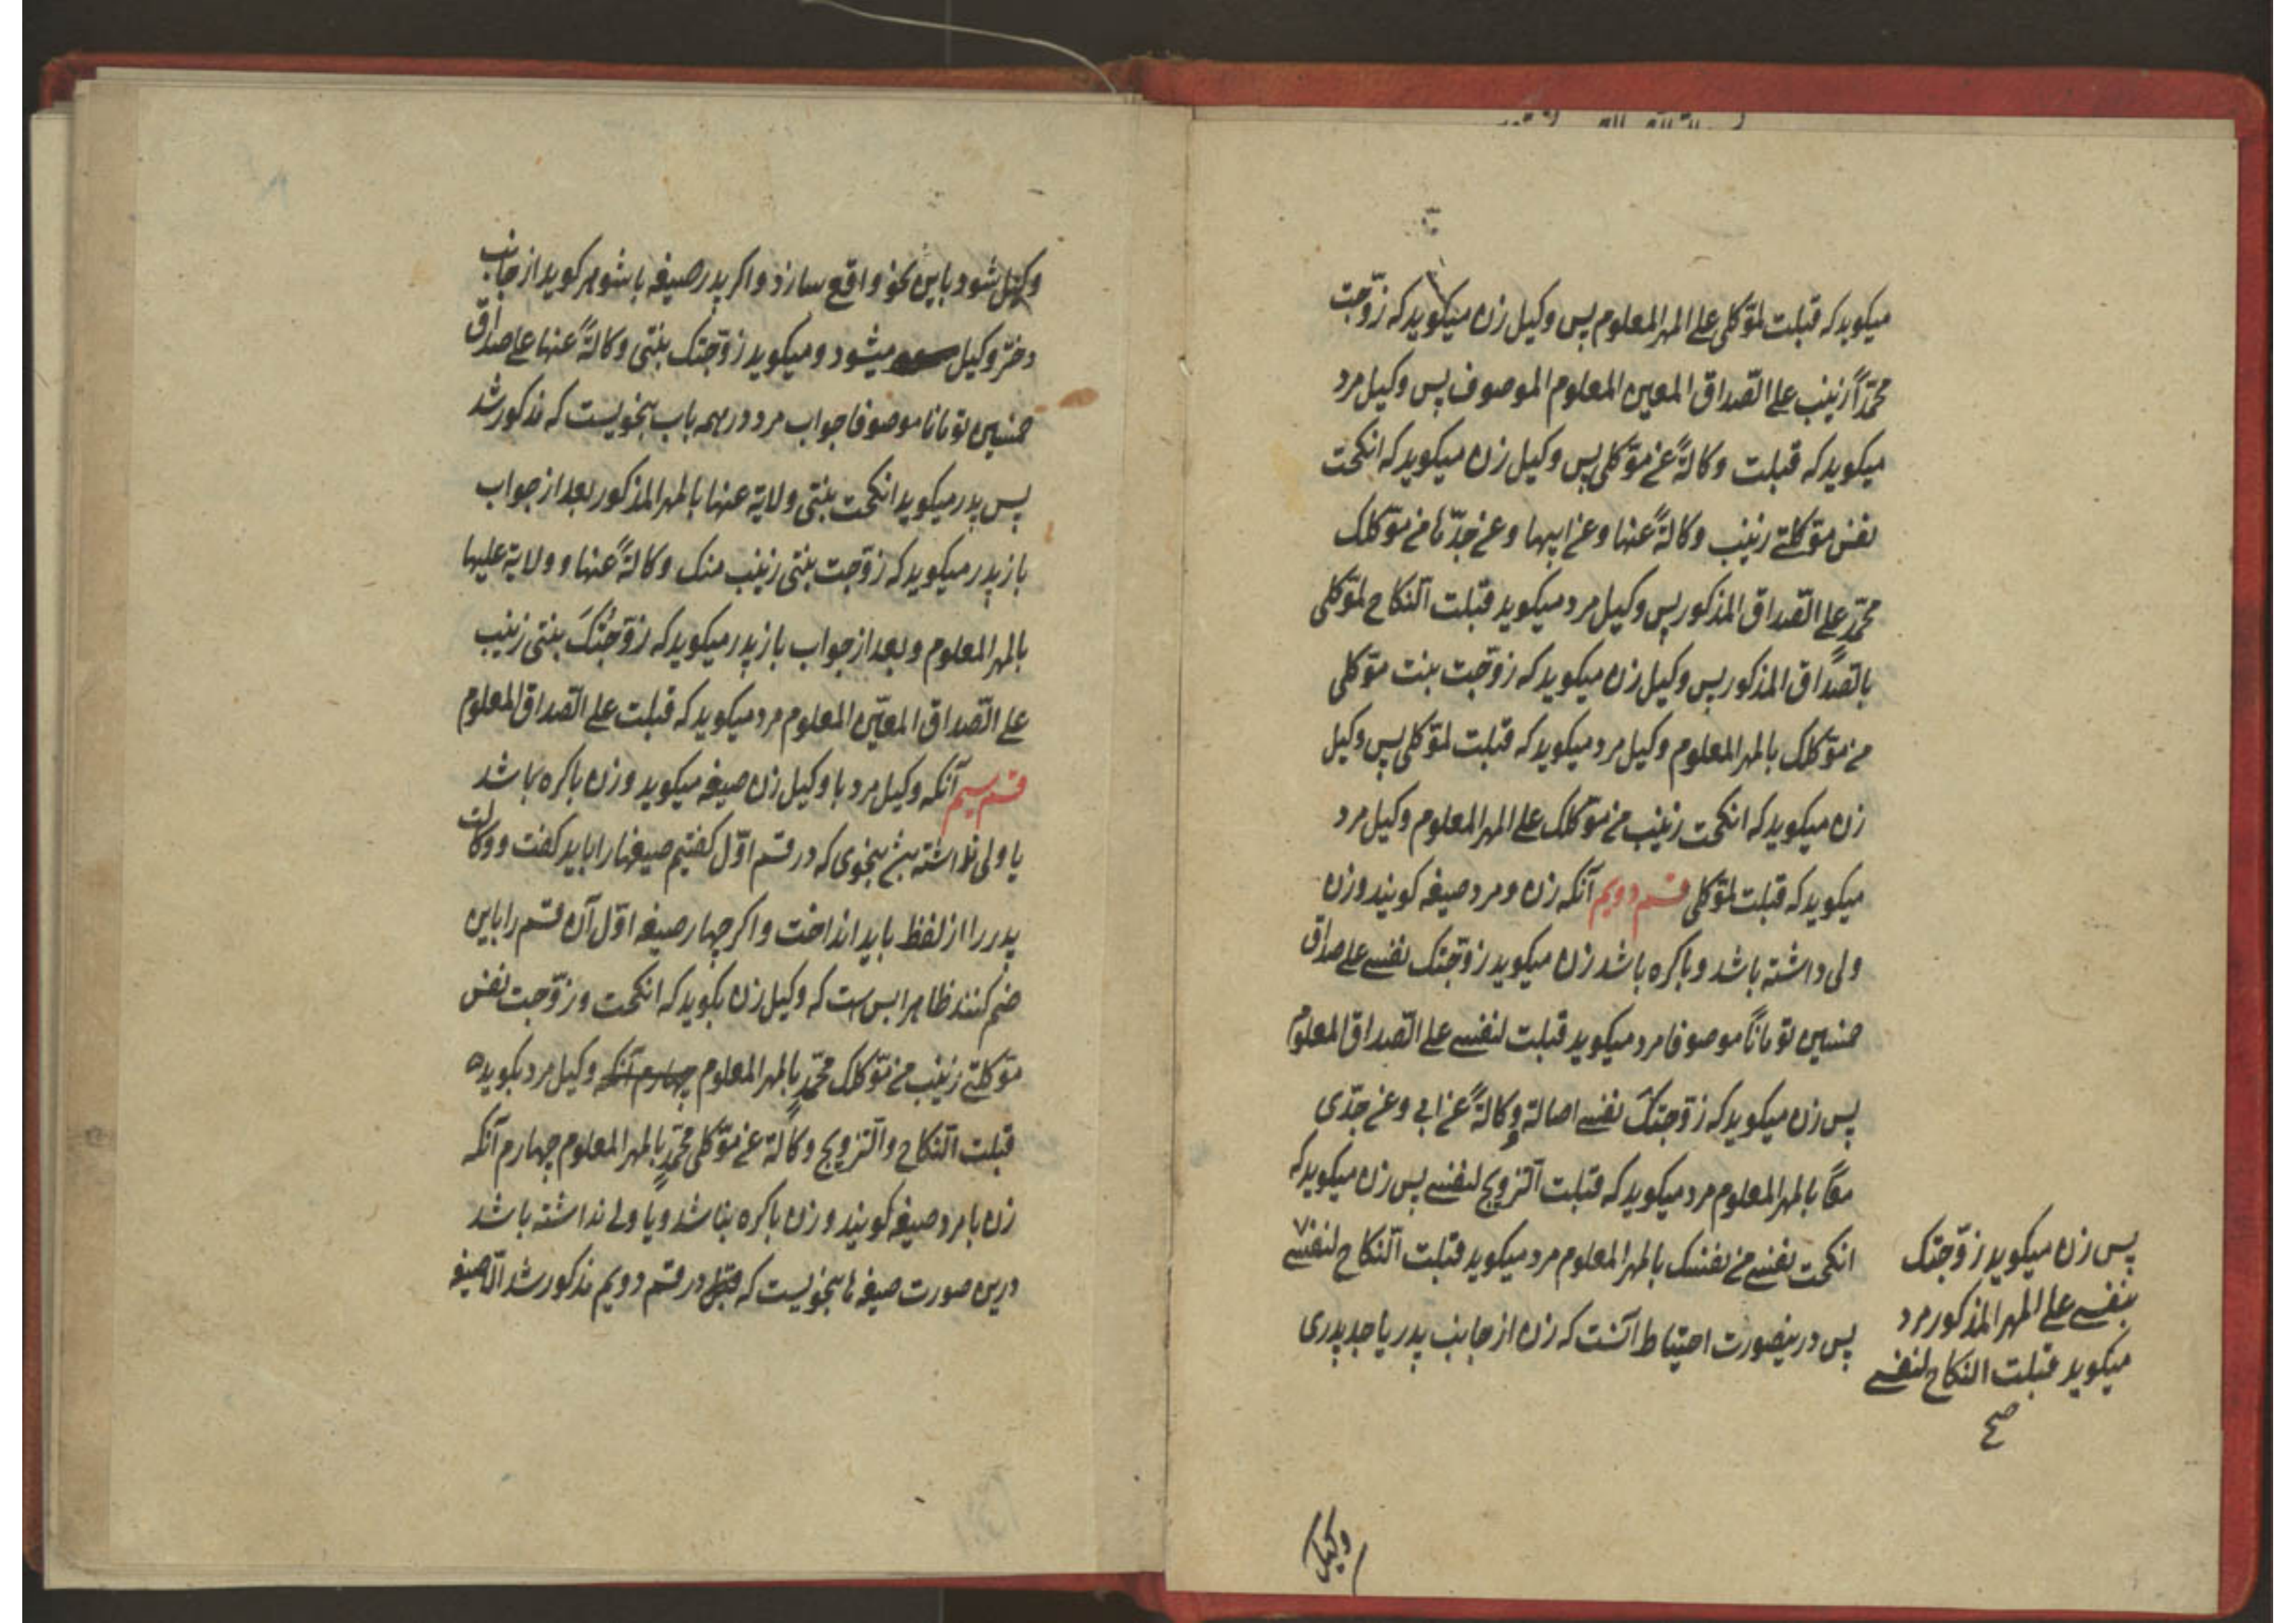 میکوید که قبلت لموکلی علی المهر المعلوم پس وکیل زن میکوید که زوّجت
محمّداً زینب علی الصّداق المعین المعلوم الموصوف پس وکیل مرد
میکوید که قبلت وکالةً عن موکلی پس وکیل زن میکوید که انکحت
نفس موکلتی زینب وکالةً عنها و عن ابیها و عن جدّها من موکلک
محمّدٍ علی الصّداق المذکور پس وکیل مرد میکوید قبلت النّکاح لموکلی
بالصّداق المذکور پس وکیل زن میکوید که زوّجت بنت موکلی
من موکلک بالمهر المعلوم وکیل مرد میکوید که قبلت لموکلی پس وکیل
زن میکوید که انکحت زینب من موکلک علی المهر المعلوم وکیل مرد
میکوید که قبلت لموکلی قسم دویم آنکه زن و مرد صیغه کویند و زن
ولی داشته باشد و باکره باشد زن میکوید زوّجتک نفسی علی صداق
خمسین توماناً موصوفا مرد میکوید قبلت لنفسی علی الصّداق المعلوم
پس زن میکوید که زوّجتک نفسی اصالة و وکالةً عن ابی و عن جدّی
معاً بالمهر المعلوم مرد میکوید که قبلت التّزویج لنفسی پس زن میکوید که
انکحت نفسی من نفسک بالمهر المعلوم مرد میکوید قبلت النّکاح لنفسی
پس درینصورت احتیاط آنست که زن از جانب پدر یا جد پدری
پس زن میکوید زوّجتک
بنفسی علی المهر المذکور مرد
میکوید قبلت النکاح لنفسی
صح
وکیل
وکیل شود باین نحو واقع سازد و اکر پدر صیغه با شوهر کوید از جانب
دختر وکیل میشود و میکوید زوّجتک بنتی وکالةً عنها علی صداق
خمسین تومانا موصوفا جواب مرد در همه باب بنحویست که مذکور شد
پس پدر میکوید انکحت بنتی ولایة عنها بالمهر المذکور بعد از جواب
باز پدر میکوید که زوّجت بنتی زینب منک وکالةً عنها و ولایة علیها
بالمهر المعلوم و بعد از جواب باز پدر میکوید که زوّجتُکَ بنتی زینب
علی الصّداق المعیّن المعلوم مرد میکوید که قبلت علی الصّداق المعلوم
قسم سیم آنکه وکیل مرد با وکیل زن صیغه میکوید و زن باکره نباشد
یا ولی نداشته بنحوی که در قسم اوّل کفتیم صیغها را باید کفت و وکالت
پدر را از لفظ باید انداخت و اکر چهار صیغه اوّل آن قسم را باین
ضم کنند ظاهرا بس است که وکیل زن بکوید که انکحت و زوّجت نفس
موکلتی زینب من موکلک محمّدٍ بالمهر المعلوم چهارم آنکه وکیل مرد بکوید
قبلت النّکاح و التّزویج وکالةً عن موکلی محمّدٍ بالمهر المعلوم چهارم آنکه
زن با مرد صیغه کویند و زن باکره نباشد و یا ولی نداشته باشد
درین صورت صیغه ها بنحویست که در قسم دویم مذکور شد الّا صیغه